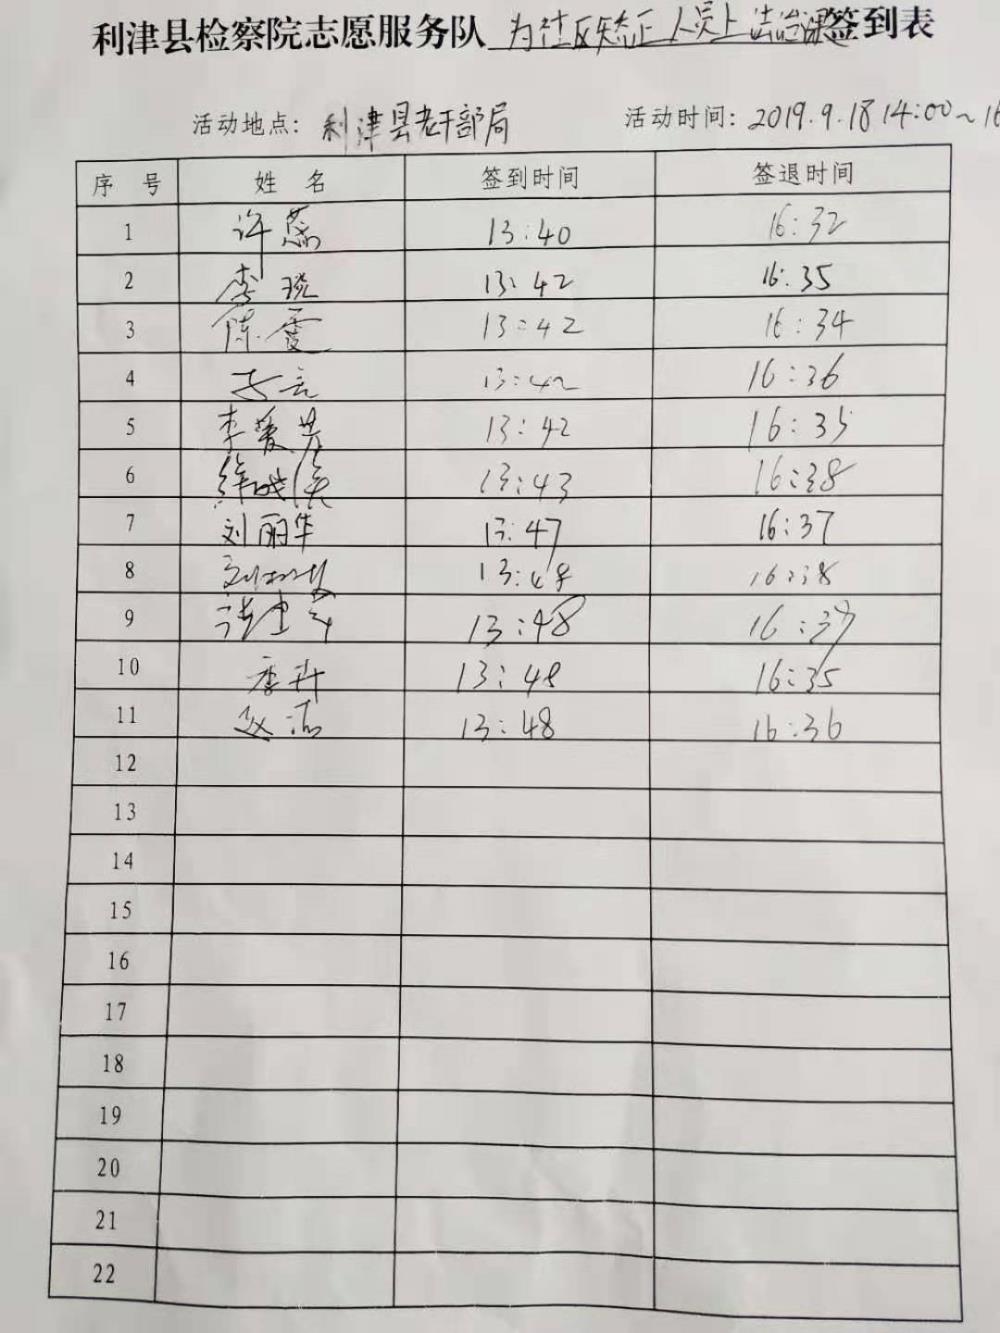 利津县检察院志愿服务队 为社区矫正人员上法治课 签到表
活动地点：利津县老干部局 活动时间：2019.9.18 14:00~16
序 号 姓 名 签到时间 签退时间
1 许蕊 13:40 16:32
2 李琰 13:42 16:35
3 陈霞 13:42 16:34
4 13:42 16:36
5 李爱芳 13:42 16:35
6 13:43 16:38
7 刘丽华 13:47 16:37
8 13:48 16:38
9 张建军 13:48 16:37
10 李卉 13:48 16:35
11 赵洁 13:48 16:36
12
13
14
15
16
17
18
19
20
21
22